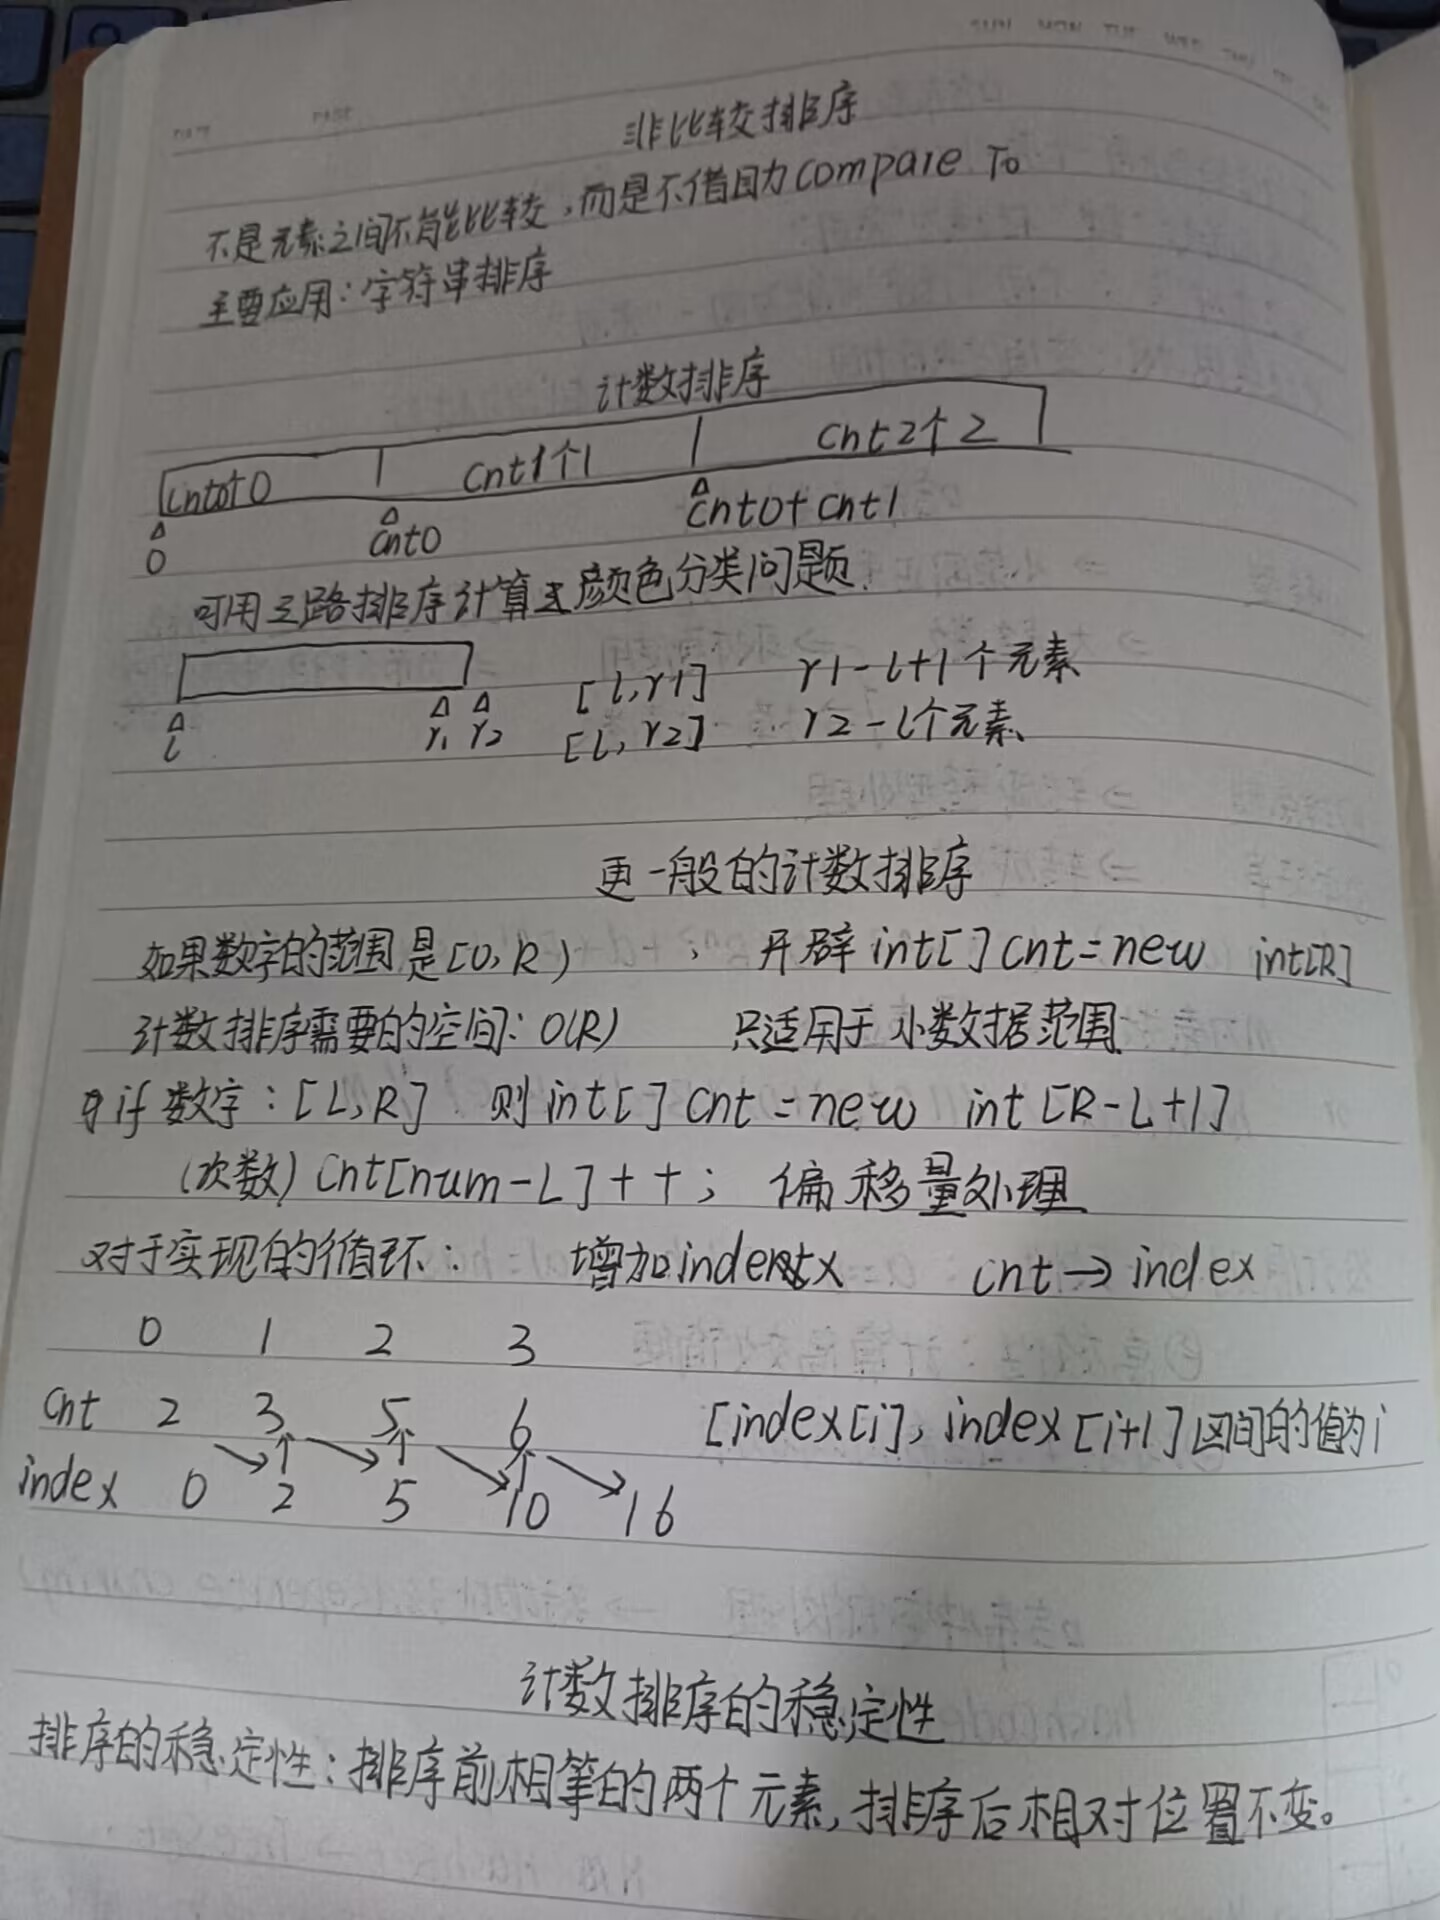 非比较排序
不是元素之间不能比较,而是不借助compare To
主要应用:字符串排序
计数排序
cnt0个0 cnt1个1 cnt2个2
0 cnt0 cnt0+cnt1
可用三路排序计算 颜色分类问题
[l,r1] r1-l+1个元素
l r1 r2 [l,r2] r2-l个元素
更一般的计数排序
如果数字的范围是[0,R) , 开辟int[]cnt=new int[R]
计数排序需要的空间:O(R) 只适用于小数据范围
if数字:[L,R] 则int[]cnt=new int[R-L+1]
(次数)cnt[num-L]++; 偏移量处理
对于实现的循环: 增加index cnt→index
0 1 2 3
cnt 2 3 5 6 [index[i],index[i+1]区间的值为i
index 0 2 5 10 16
计数排序的稳定性
排序的稳定性:排序前相等的两个元素,排序后相对位置不变。